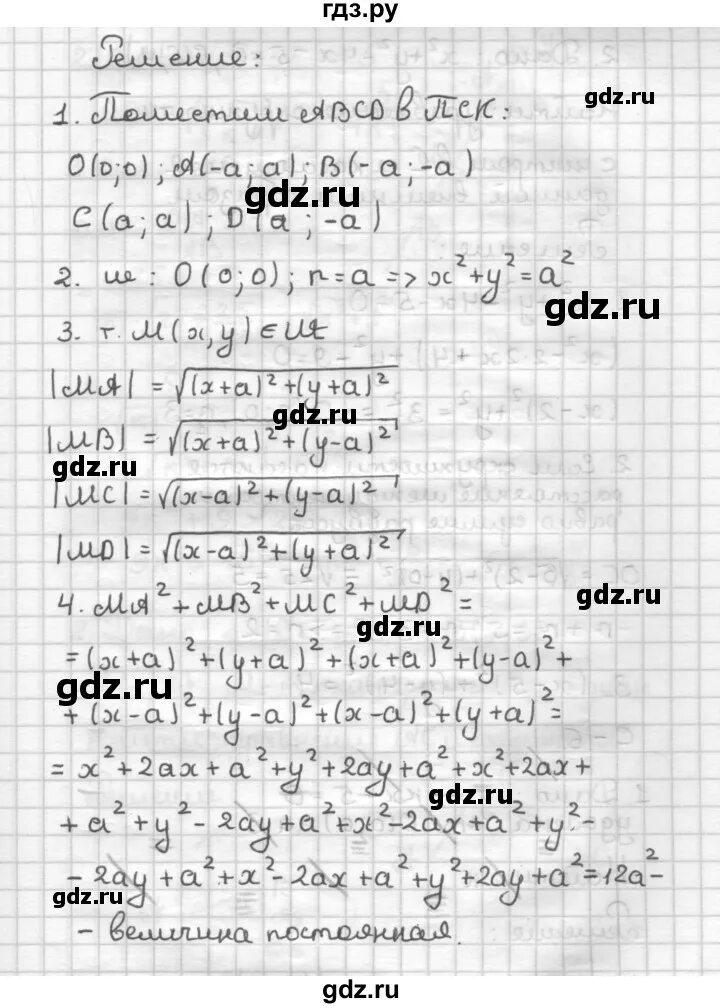 гдз.ру
Решение:
gdz.ru
1. Поместим ABCD в ПСК:
O(0;0); A(-a; a); B(-a; -a)
gdz.ru
C(a; a), D(a; -a)
2. O(0;0); r=a => x²+y²=a²
gdz.ru
gdz.ru
3. т. M(x,y)∈
|MA| = √(x+a)²+(y+a)²
gdz.ru
|MB| = √(x+a)²+(y-a)²
gdz.ru
|MC| = √(x-a)²+(y-a)²
|MD| = √(x-a)²+(y+a)²
4. MA²+MB²+MC²+MD²=
gdz.ru
gdz.ru
=(x+a)²+(y+a)²+(x+a)²+(y-a)²+
gdz.ru
+(x-a)²+(y-a)²+(x-a)²+(y+a)²=
= x²+2ax+a²+y²+2ay+a²+x²+2ax+
gdz.ru
+a²+y²-2ay+a²+x²-2ax+a²+y²-
-2ay+a²+x²-2ax+a²+y²+2ay+a²=12a²-
gdz.ru
- величина постоянная.
gdz.ru
gdz.ru